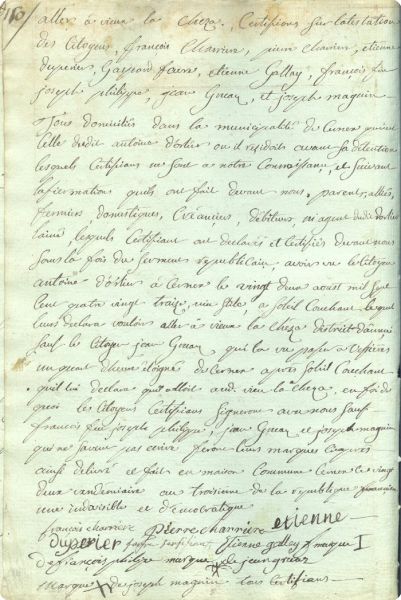 180/
aller à vieux la Cheza, Certifions Sur l'atestation
des Citoyens, françois charriere, pierre charriere, etienne
duperier, Gaspard favre, etienne Gallay, françois
joseph philippe, jean Greaz, et joseph maguin
Tous domiciliés dans la municipalité de Cernex
Celle dudit antoine d'ostier ou il residoit avant sa détention
lesquels Certifians ne Sont à notre Connoissance, et Suivant
lafirmation quils ont fait devant nous, parents, alliés,
fermiers, domestiques, Créanciers, débiteurs ni agent dudit
laine, lesquels Certifians ont declarés et Certifiés devant nous
Sous la fois du Serment republicain, avoir vu le Citoyen
antoine d'ostier à Cernex le vingt deux aoust mil Sept
Cent quatre vingt traize, vieu Stile, à Soleil Couchant lequel
leurs declara vouloir aller à vieux la Cheza district d'annecy
Sauf le Citoyen jean Greaz, qui la vu passer à
un quart dheure éloigné de Cernex après Soleil Couchant
qui lui declara quil alloit audit vieu la Cheza, en foi de
quoi les Citoyens Certifians Signeront avec nous Sauf
françois joseph philippe, jean Greaz et joseph maguin
qui ne Savent pas ecrire feront leurs marques Requis
ainsi délivré et fait en maison Commune Cernex le vingt
deux vendemiaire an troisieme de la republique
une indivisible et democratique
françois charriere pierre charrière etienne
duperier etienne gallay marque
de françois philipe marque de jean greaz
marque de joseph maguin tous Certifians